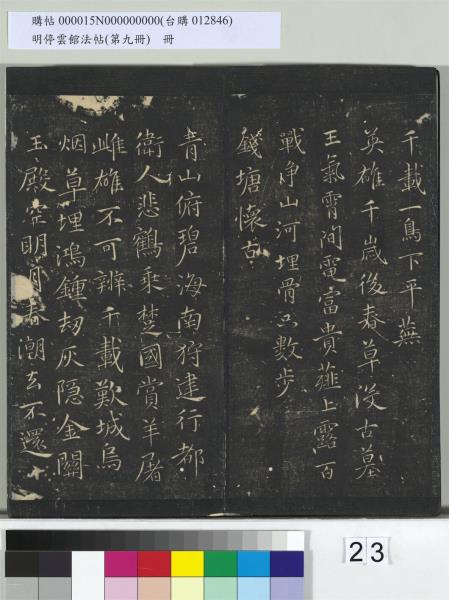 購帖 000015N000000000(台購 012846)
明停雲館法帖(第九冊) 冊
千載一鳥下平蕪
英雄千歲後春草沒古墓
王氣霄間電富貴薤上露百
戰爭山河埋骨只數步
錢塘懷古
青山俯碧海南狩建行都
衛人悲鶴乘楚國賞羊屠
雌雄不可辨千載歎城烏
烟草埋鴻鍾劫灰隐金關
玉殿空明月春潮去不還
23